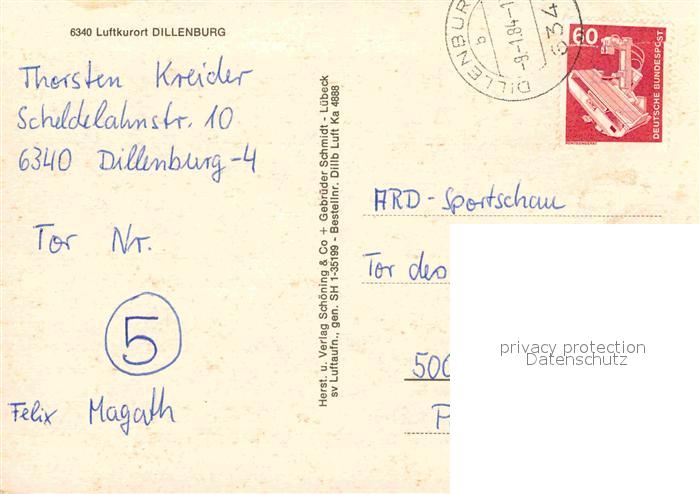 6340 Luftkurort DILLENBURG
Thorsten Kreider
Scheldelahnstr. 10
6340 Dillenburg-4
Tor Nr.
5
Felix Magath
Herst. u. Verlag Schöning & Co + Gebrüder Schmidt - Lübeck
sv Luftaufn., gen. SH 1-35199 - Bestellnr. Dillb Luft Ka 4888
DILLENBURG
b
-9-1.84-1
634
60
DEUTSCHE BUNDESPOST
RÖNTGENGERÄT
ARD-Sportschau
Tor des
500
P
privacy protection
Datenschutz